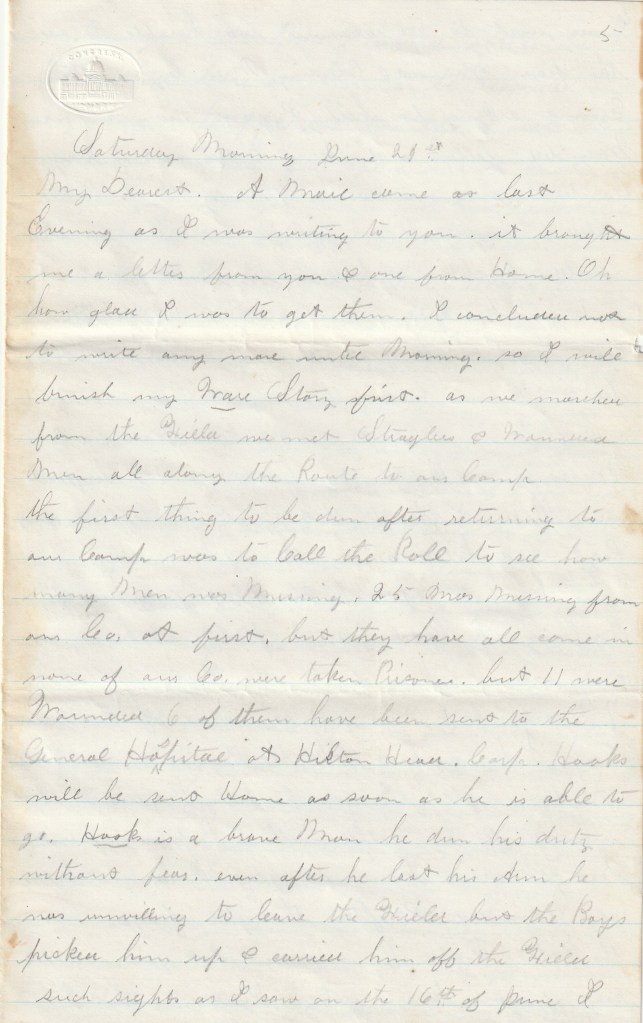 5
Saturday Morning June 21st
My Dearest. A Mail came as last
Evening as I was writing to you. it brought
me a letter from you & one from Home. Oh
how glad I was to get them. I concluded not
to write any more until Morning. so I will
finish my Ware Story first. as we marched
from the Field we met Straglers & Wounded
Men all along the Route to our Camp
the first thing to be dun after returning to
our Camp was to Call the Roll to see how
many Men was Missing. 25 Was Missing from
our Co. at first. but they have all come in
none of our Co. were taken Prisoner. but 11 were
Wounded 6 of them have been sent to the
General Hospital at Hilton Head. Corp. Hooks
will be sent Home as soon as he is able to
go. Hooks is a brave Man he dun his duty
without fear. even after he lost his Arm he
was unwilling to leave the Field but the Boys
picked him up & carried him off the Field
such sights as I saw on the 16th of June I